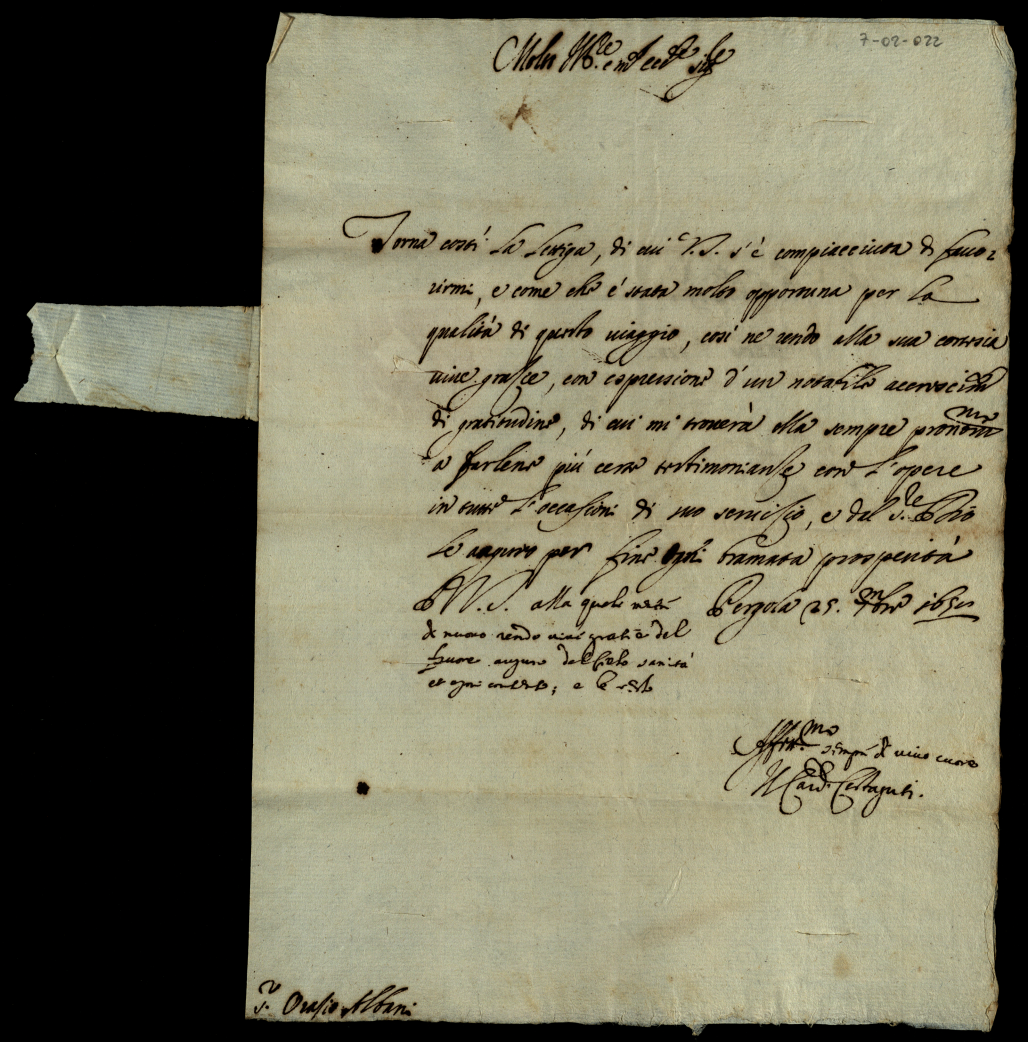 7-02-022
Molto Ill.re e m.to ecc.te sig.re
Torna costì la letiga, di cui V.S. s'è compiacciuta di fauo:
rirmi, e come che è stata molto opportuna per la
qualità di questo uiaggio, così ne rendo alla sua cortesia
uiue grazie, con espressione d'un notabile
di gratitudine, di cui mi trouerà ella sempre prontissimo
a farlene più certe testimonianze con l'opere
in tutte l'occasioni di suo seruitio, e dal S.re Iddio
le auguro per fine ogni bramata prosperità
Pergola 25. 9mbre 1650
D V.S. alla quale
di nuouo rendo uiui gratie del
fauore auguro dal Cielo sanità
et ogni contento; e le resto
Aff.mo sempre di uiuo cuore
Il Card. Cestaguti.
S.r Orazio Albani